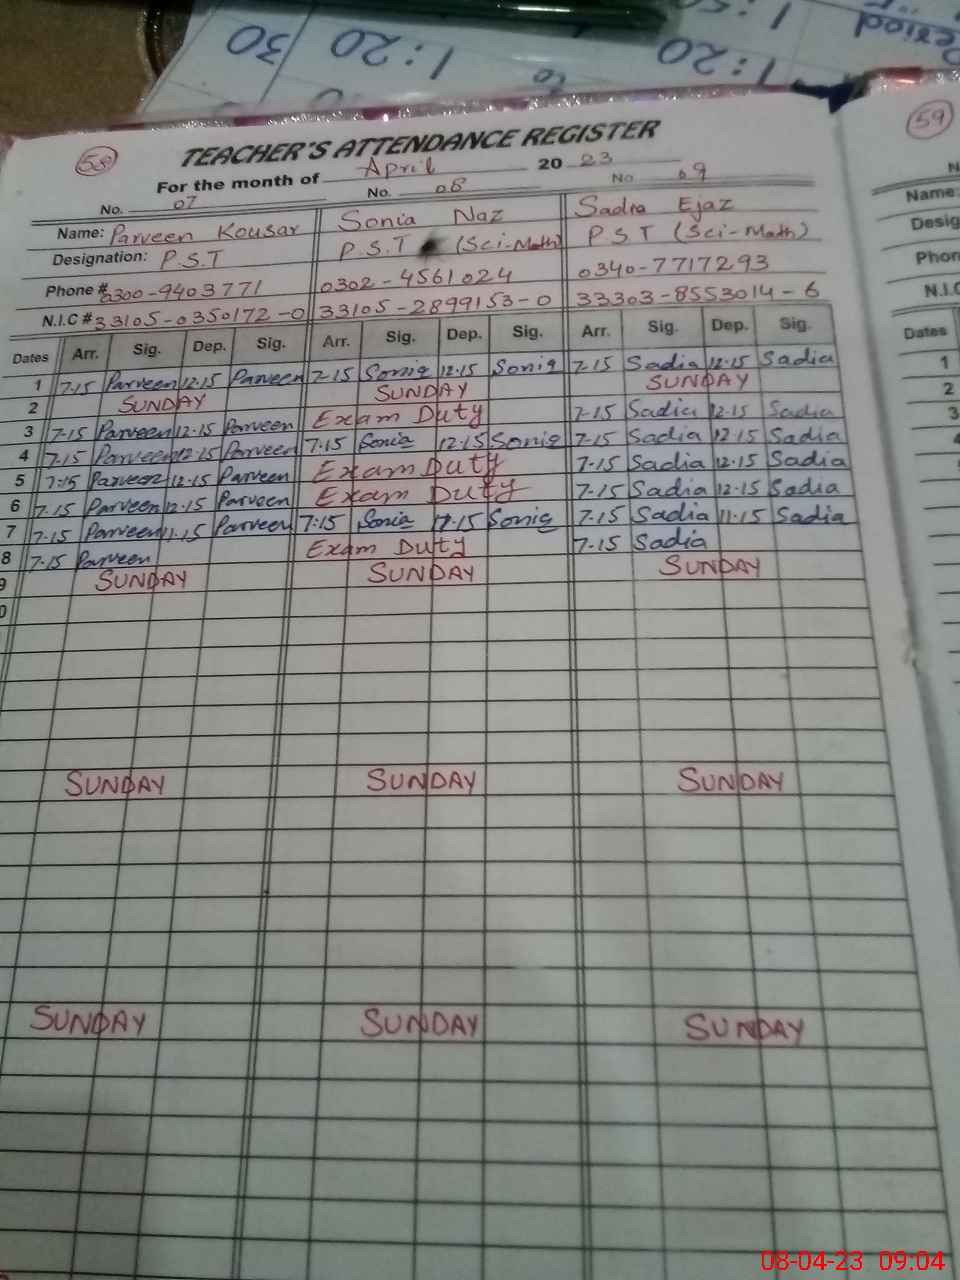 30 1:20 1:20 Period
to
58 TEACHER'S ATTENDANCE REGISTER 59
For the month of April 2023
No. 07 No. 08 No 09
Name: Parveen Kousar Sonia Naz Sadia Ejaz Name:
Designation: P.S.T P.S.T (Sci-Math) P.S.T (Sci-Math) Desig
Phone # 0300-9403771 0302-4561024 0340-7717293 Phon
N.I.C # 33105-0350172-0 33105-2899153-0 33303-8553014-6 N.I.C
Dates Arr. Sig. Dep. Sig. Arr. Sig. Dep. Sig. Arr. Sig. Dep. Sig. Dates
1 7-15 Parveen 12-15 Parveen 7-15 Sonia 12-15 Sonia 7-15 Sadia 12-15 Sadia 1
2 SUNDAY SUNDAY SUNDAY 2
3 7-15 Parveen 12-15 Parveen Exam Duty 7-15 Sadia 12-15 Sadia 3
4 7-15 Parveen 12-15 Parveen 7-15 Sonia 12-15 Sonia 7-15 Sadia 12-15 Sadia
5 7-15 Parveen 12-15 Parveen Exam Duty 7-15 Sadia 12-15 Sadia
6 7-15 Parveen 12-15 Parveen Exam Duty 7-15 Sadia 12-15 Sadia
7 7-15 Parveen 11-15 Parveen 7-15 Sonia Sonia 7-15 Sadia 11-15 Sadia
8 7-15 Parveen Exam Duty 7-15 Sadia
9 SUNDAY SUNDAY SUNDAY
SUNDAY SUNDAY SUNDAY
SUNDAY SUNDAY SUNDAY
08-04-23 09:04